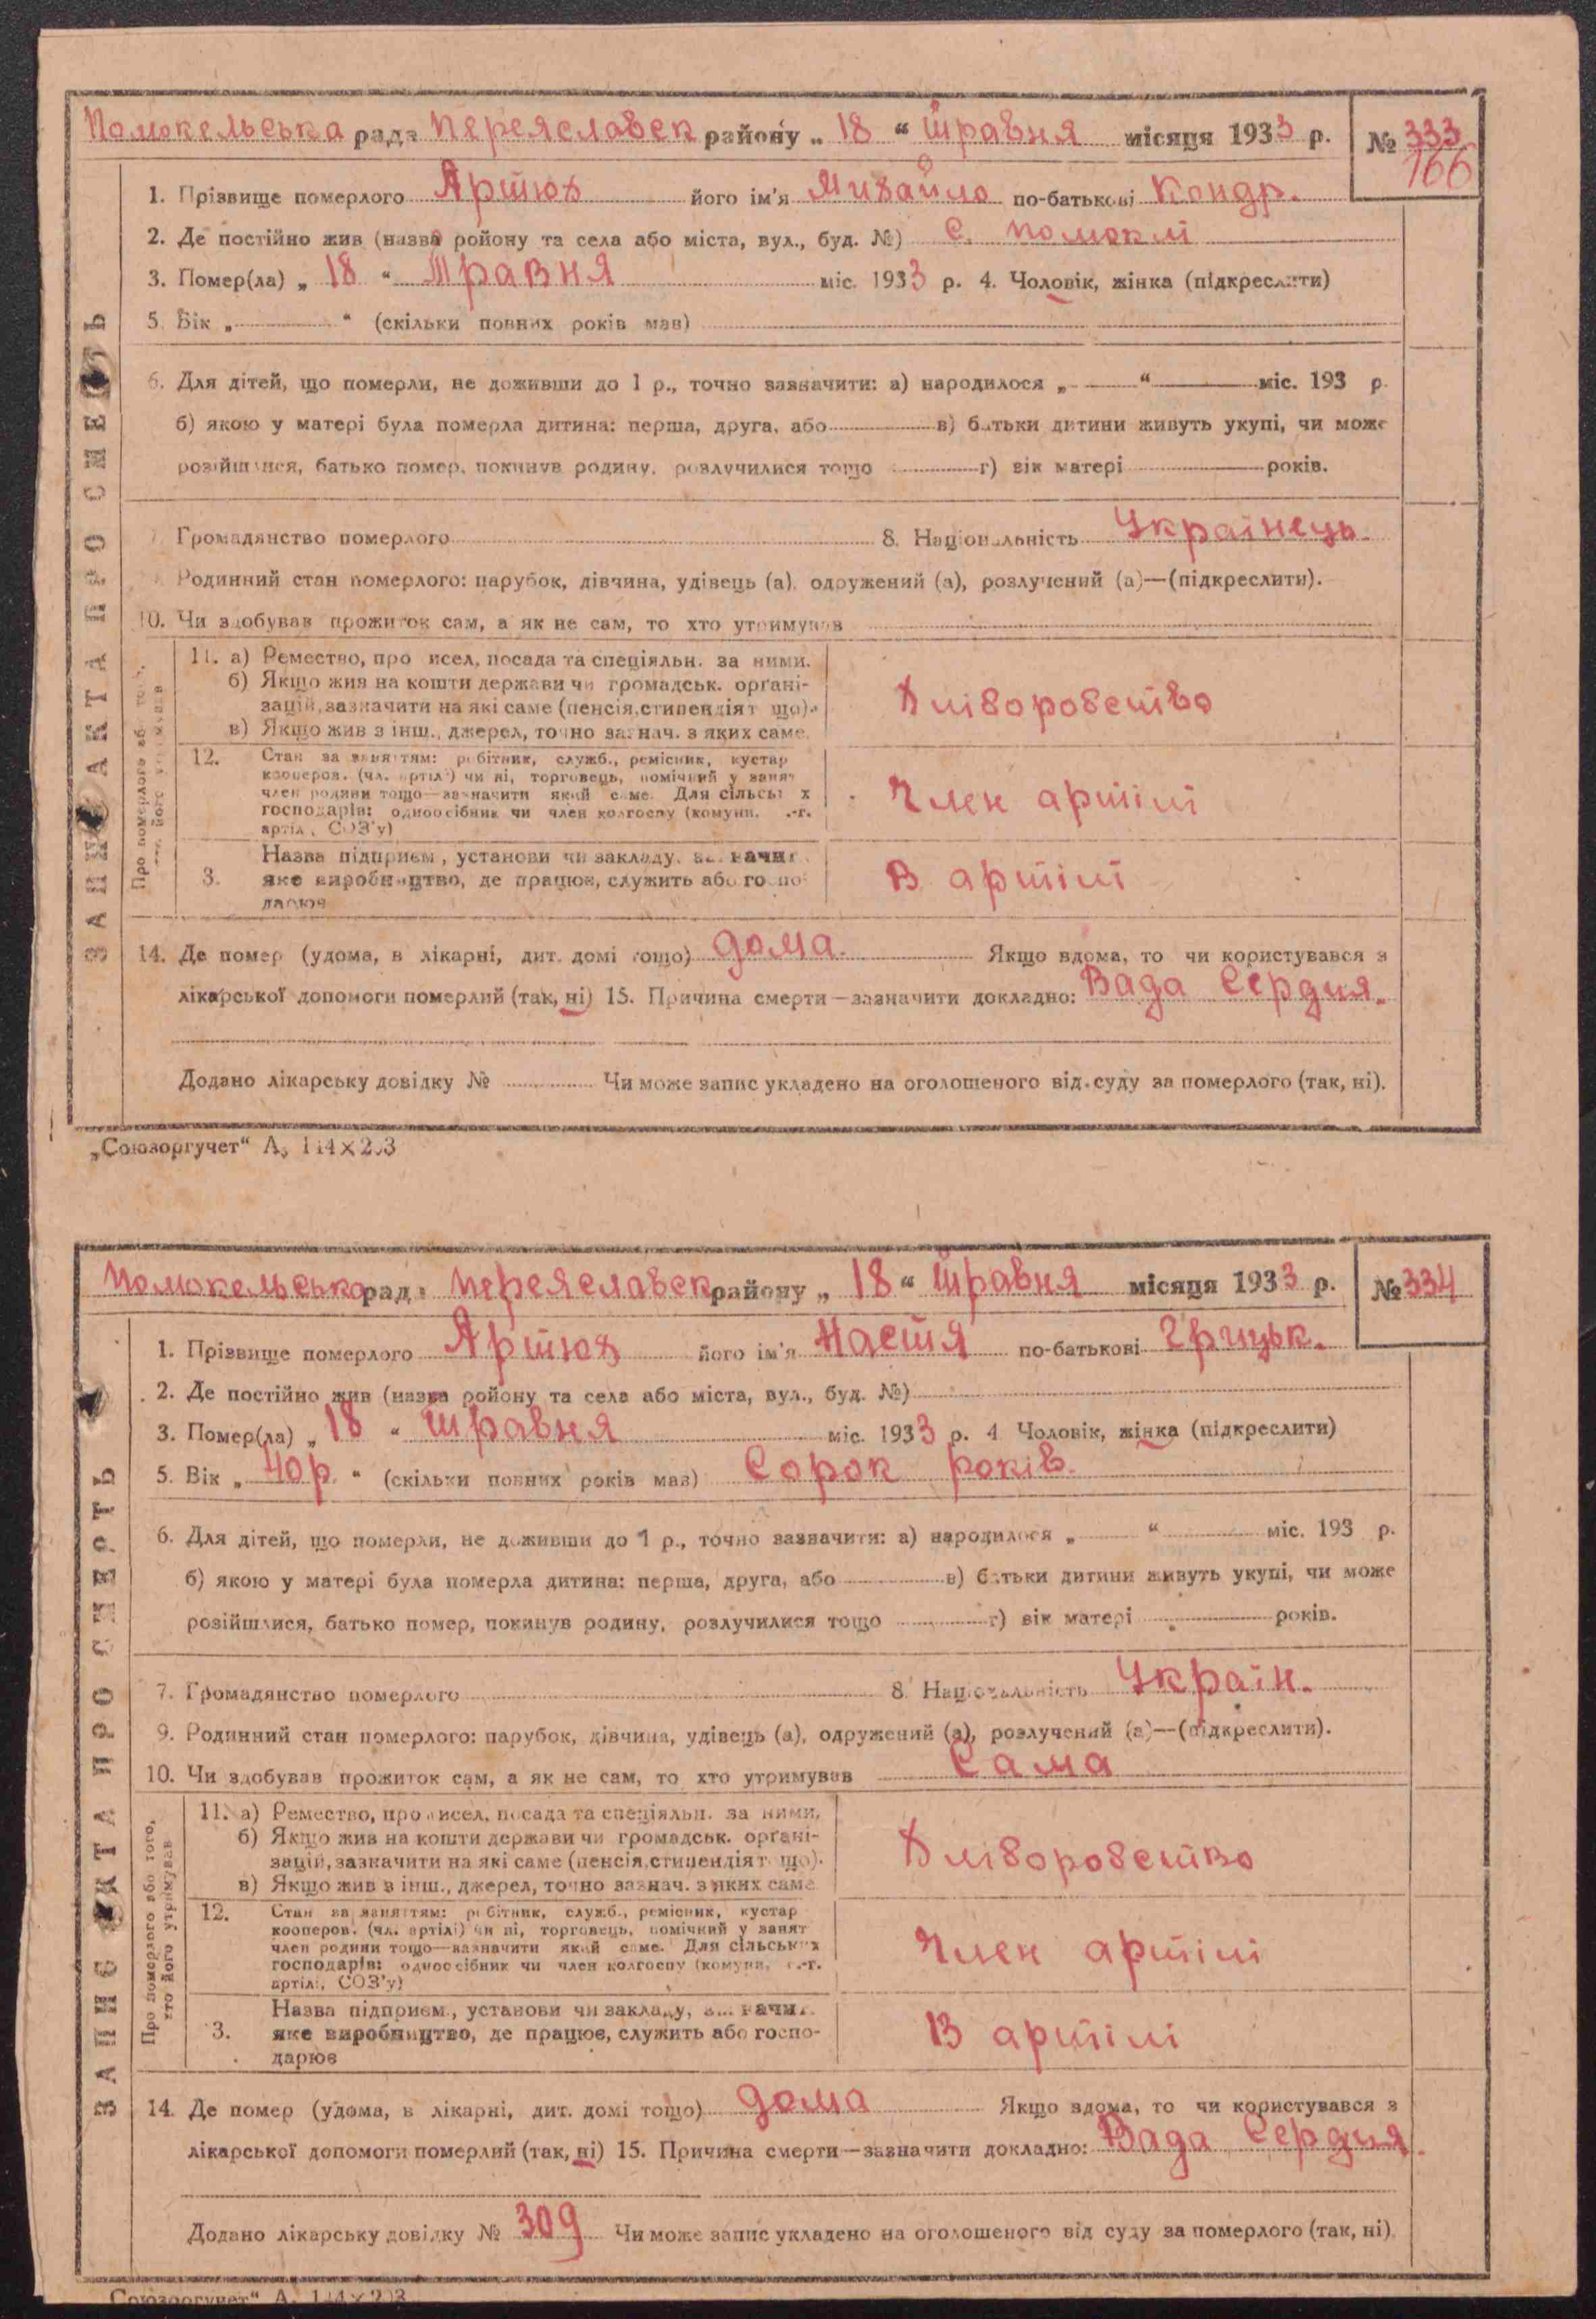 Помокельська рада Переяславск району „ 18 “ травня місяця 1933 р. № 333
166
1. Прізвище померлого Артюх його ім'я Михайло по-батькові Кондр.
2. Де постійно жив (назва ройону та села або міста, вул., буд. №) С. Помоклі
3. Помер(ла) „ 18 “ Травня міс. 1933 р. 4. Чоловік, жінка (підкреслити)
5. Вік „ “ (скільки повних років мав)
6. Для дітей, що померли, не доживши до 1 р., точно зазначити: а) народилося „ “ міс. 193 р.
б) якою у матері була померла дитина: перша, друга, або в) батьки дитини живуть укупі, чи може
розійшлися, батько помер, покинув родину, розлучилися тощо г) вік матері років.
7. Громадянство померлого 8. Національність Українець.
Родинний стан померлого: парубок, дівчина, удівець (а), одружений (а), розлучений (а)—(підкреслити).
10. Чи здобував прожиток сам, а як не сам, то хто утримував
ЗАПИС АКТА ПРО СМЕРТЬ
Про померлого або того, хто його утримував
11. а) Ремество, про исел, посада та спеціяльн. за ними.
б) Якщо жив на кошти держави чи громадськ. орґані-
зацій, зазначити на які саме (пенсія, стипендія т що).
в) Якщо жив з інш., джерел, точно зазнач. з яких саме.
Хліборобство
12. Стан за заняттям: робітник, служб., ремісник, кустар
кооперов. (чл. артілі) чи ні, торговець, помічний у занят
член родини тощо—зазначити який саме. Для сільськ х
господарів: одноосібник чи член колгоспу (комуни, .-г.
артіл , СОЗ'у)
Член артілі
Назва підприєм , установи чи закладу, зазначит
3. яке виробництво, де працює, служить або госпо-
дарює
В артілі
14. Де помер (удома, в лікарні, дит. домі тощо) дома. Якщо вдома, то чи користувався з
лікарської допомоги померлий (так, ні) 15. Причина смерти—зазначити докладно: Вада Сердця.
Додано лікарську довідку № Чи може запис укладено на оголошеного від суду за померлого (так, ні).
„Союзоргучет“ А₅ 144×203
Помокельська рада Переяславск району „ 18 “ травня місяця 1933 р. № 334
1. Прізвище померлого Артюх його ім'я Настя по-батькові Грицьк.
2. Де постійно жив (назва ройону та села або міста, вул., буд. №)
3. Помер(ла) „ 18 “ травня міс. 1933 р. 4 Чоловік, жінка (підкреслити)
5. Вік „ 40 р. “ (скільки повних років мав) Сорок років.
6. Для дітей, що померли, не доживши до 1 р., точно зазначити: а) народилося „ “ міс. 193 р.
б) якою у матері була померла дитина: перша, друга, або в) батьки дитини живуть укупі, чи може
розійшлися, батько помер, покинув родину, розлучилися тощо г) вік матері років.
7. Громадянство померлого 8. Національність Україн.
9. Родинний стан померлого: парубок, дівчина, удівець (а), одружений (а), розлучений (а)—(підкреслити).
10. Чи здобував прожиток сам, а як не сам, то хто утримував Сама
ЗАПИС АКТА ПРО СМЕРТЬ
Про померлого або того, хто його утримував
11. а) Ремество, про исел, посада та спеціяльн. за ними.
б) Якщо жив на кошти держави чи громадськ. орґані-
зацій, зазначити на які саме (пенсія, стипендія т що).
в) Якщо жив з інш., джерел, точно зазнач. з яких саме
Хліборобство
12. Стан за заняттям: робітник, служб., ремісник, кустар
кооперов. (чл. артілі) чи ні, торговець, помічний у занят
член родини тощо—зазначити який саме. Для сільських
господарів: одноосібник чи член колгоспу (комуни, с.-г.
артілі, СОЗ'у)
Член артілі
Назва підприєм., установи чи закладу, зазначит
3. яке виробництво, де працює, служить або госпо-
дарює
В артілі
14. Де помер (удома, в лікарні, дит. домі тощо) дома Якщо вдома, то чи користувався з
лікарської допомоги померлий (так, ні) 15. Причина смерти—зазначити докладно: Вада Сердця.
Додано лікарську довідку № 309 Чи може запис укладено на оголошеного від суду за померлого (так, ні).
Союзоргучет“ А₅ 144×203